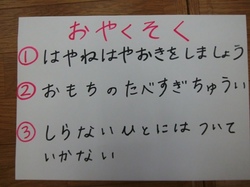 おやくそく
①はやねはやおきをしましょう
②おもちのたべすぎちゅうい
③しらないひとにはついて
いかない